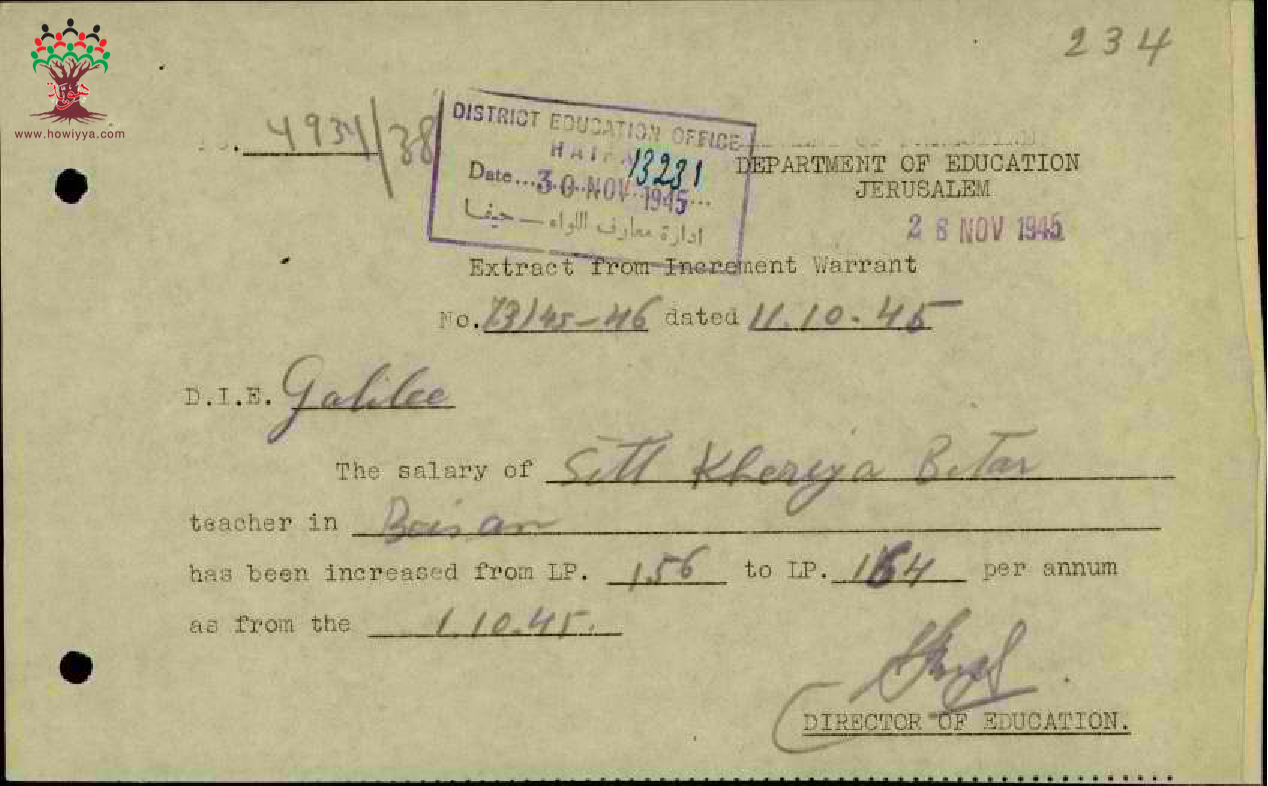 234
هوية
www.howiyya.com
No. 4934/38
DISTRICT EDUCATION OFFICE
HAIFA
13231
Date... 30 NOV 1945...
ادارة معارف اللواء – حيفا
DEPARTMENT OF EDUCATION
JERUSALEM
28 NOV 1945
Extract from Increment Warrant
No. 73/45-46 dated 11.10.45
D.I.E. Galilee
The salary of Sitt Kheriya Bitar
teacher in Beisan
has been increased from LP. 156 to LP. 164 per annum
as from the 1.10.45.
DIRECTOR OF EDUCATION.